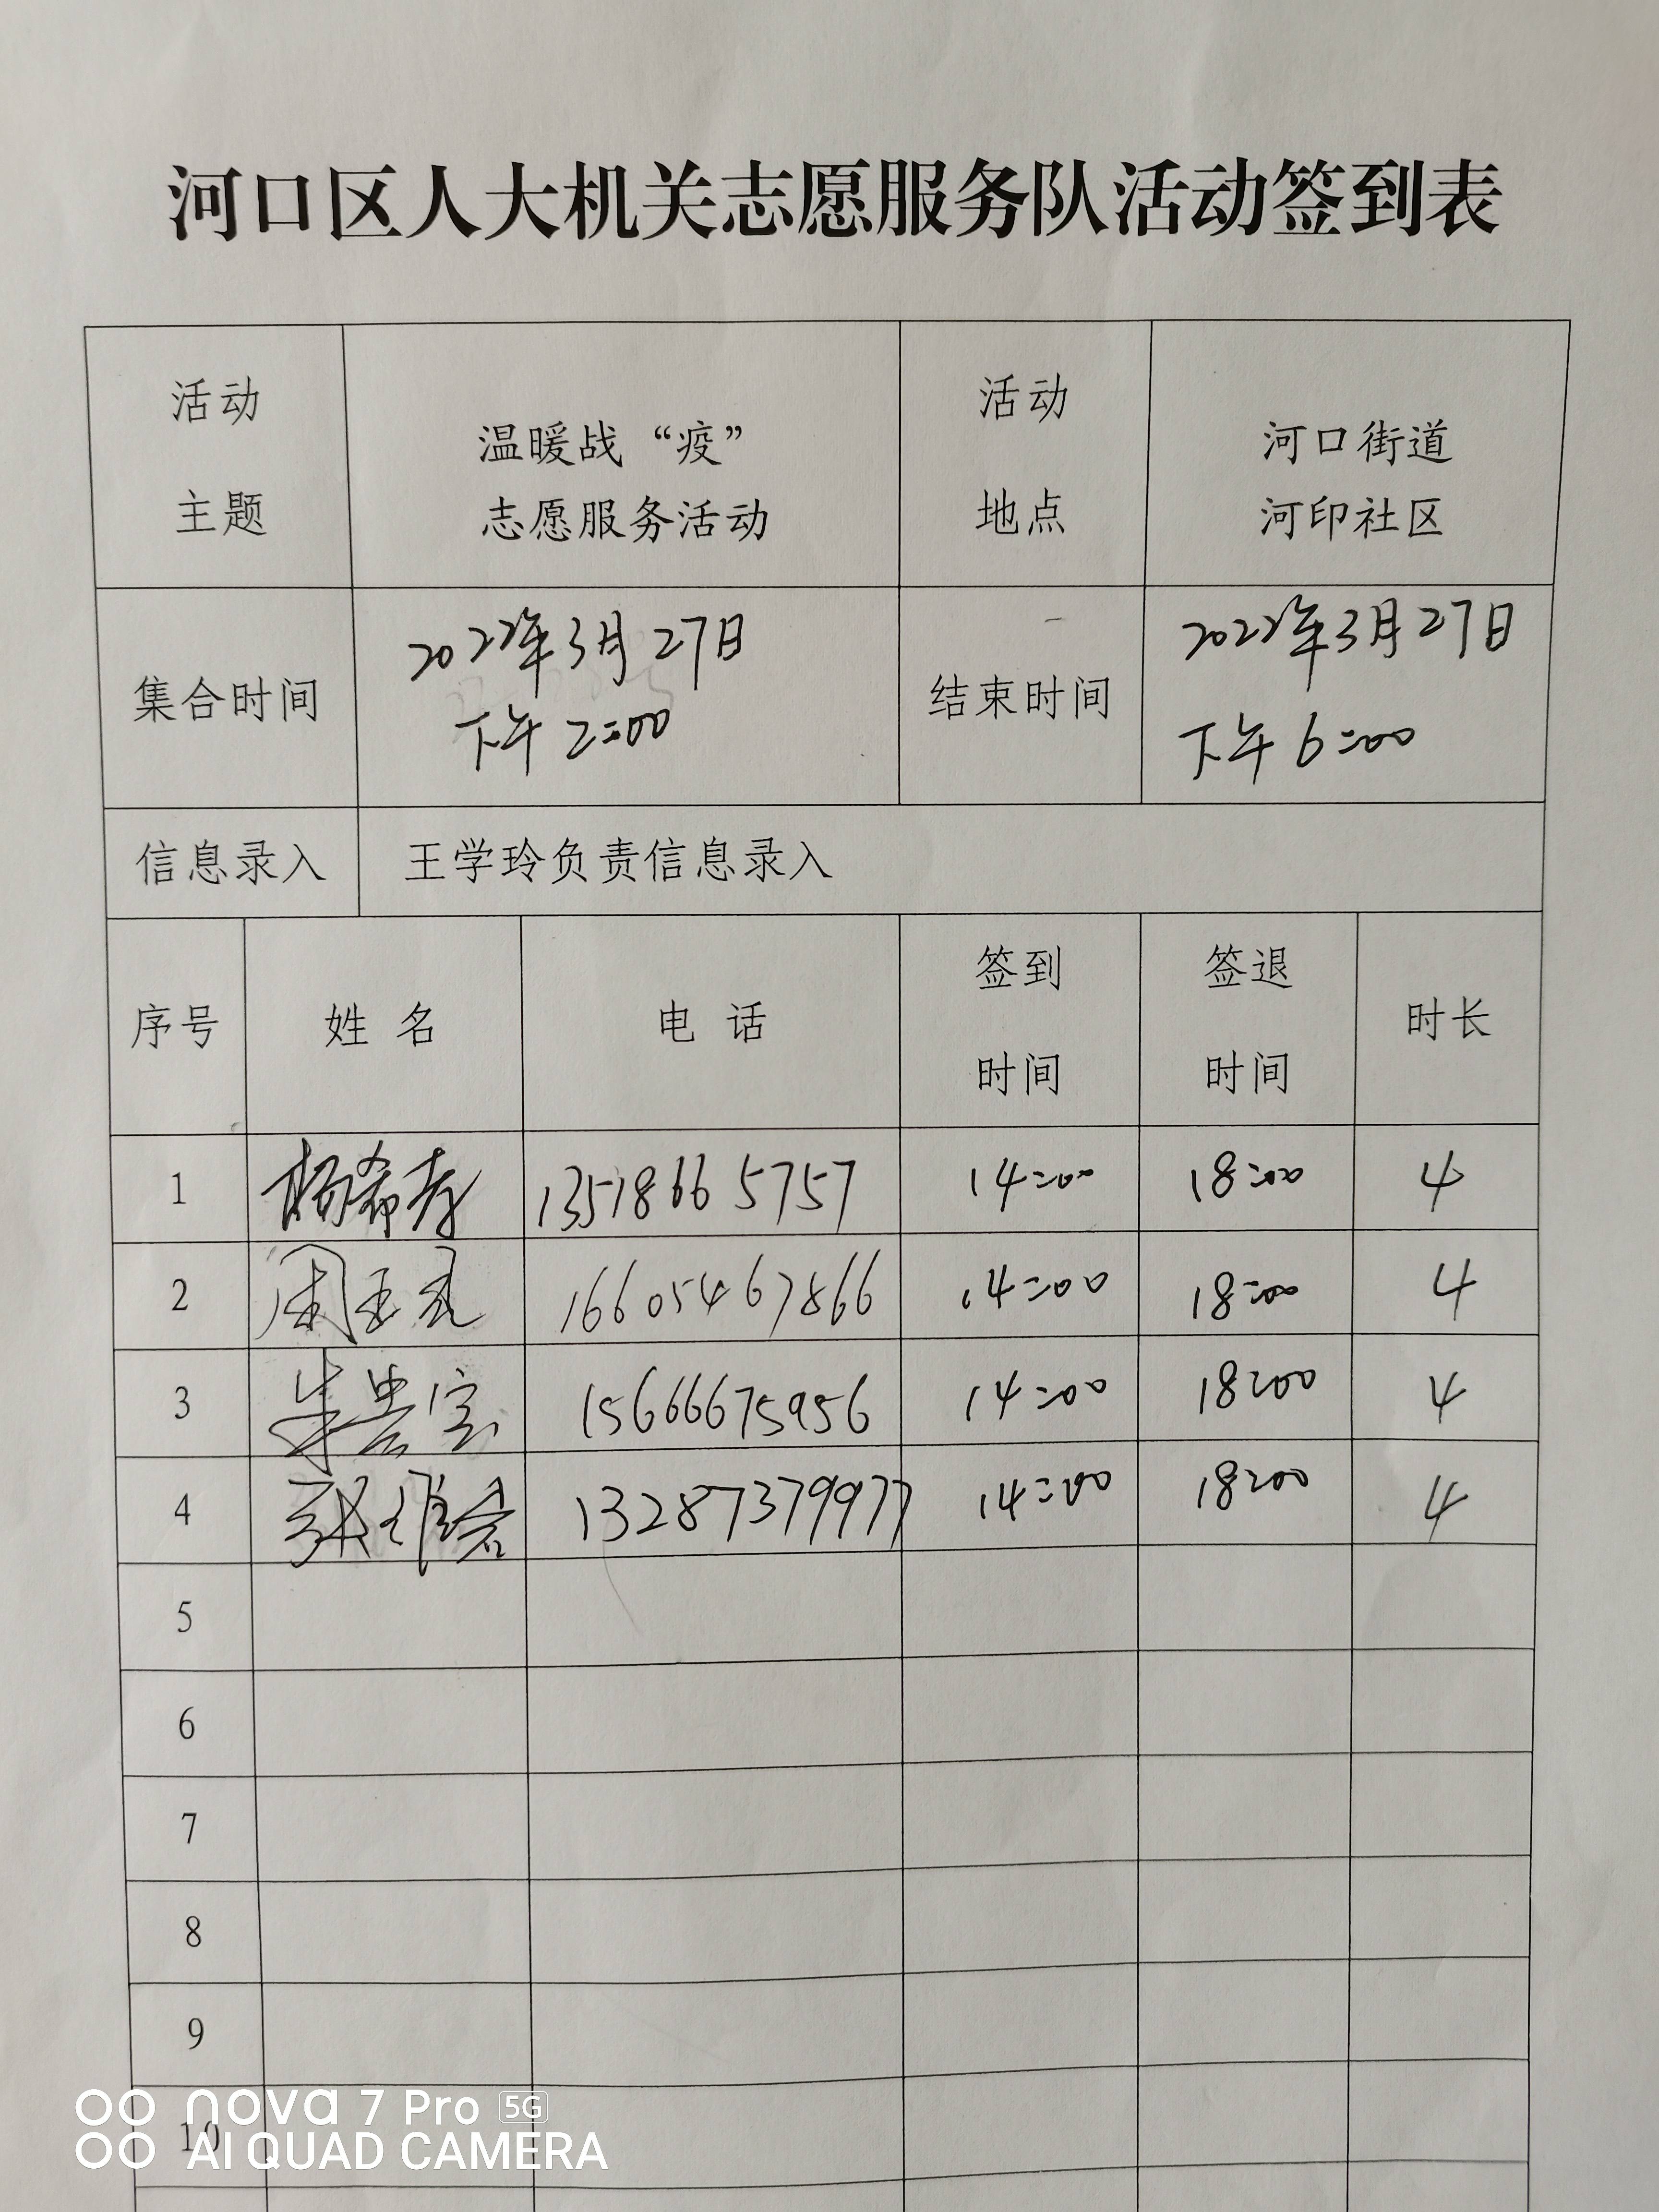 河口区人大机关志愿服务队活动签到表
活动 主题
温暖战“疫”
志愿服务活动
活动 地点
河口街道
河印社区
集合时间
2022年3月27日
下午2:00
结束时间
2022年3月27日
下午6:00
信息录入 王学玲负责信息录入
序号 姓名 电话 签到时间 签退时间 时长
1 杨希 13518665757 14:00 18:00 4
2 周 16605467866 14:00 18:00 4
3 朱宝 15666675956 14:00 18:00 4
4 张维 13287379977 14:00 18:00 4
5
6
7
8
9
10
nova 7 Pro 5G
AI QUAD CAMERA